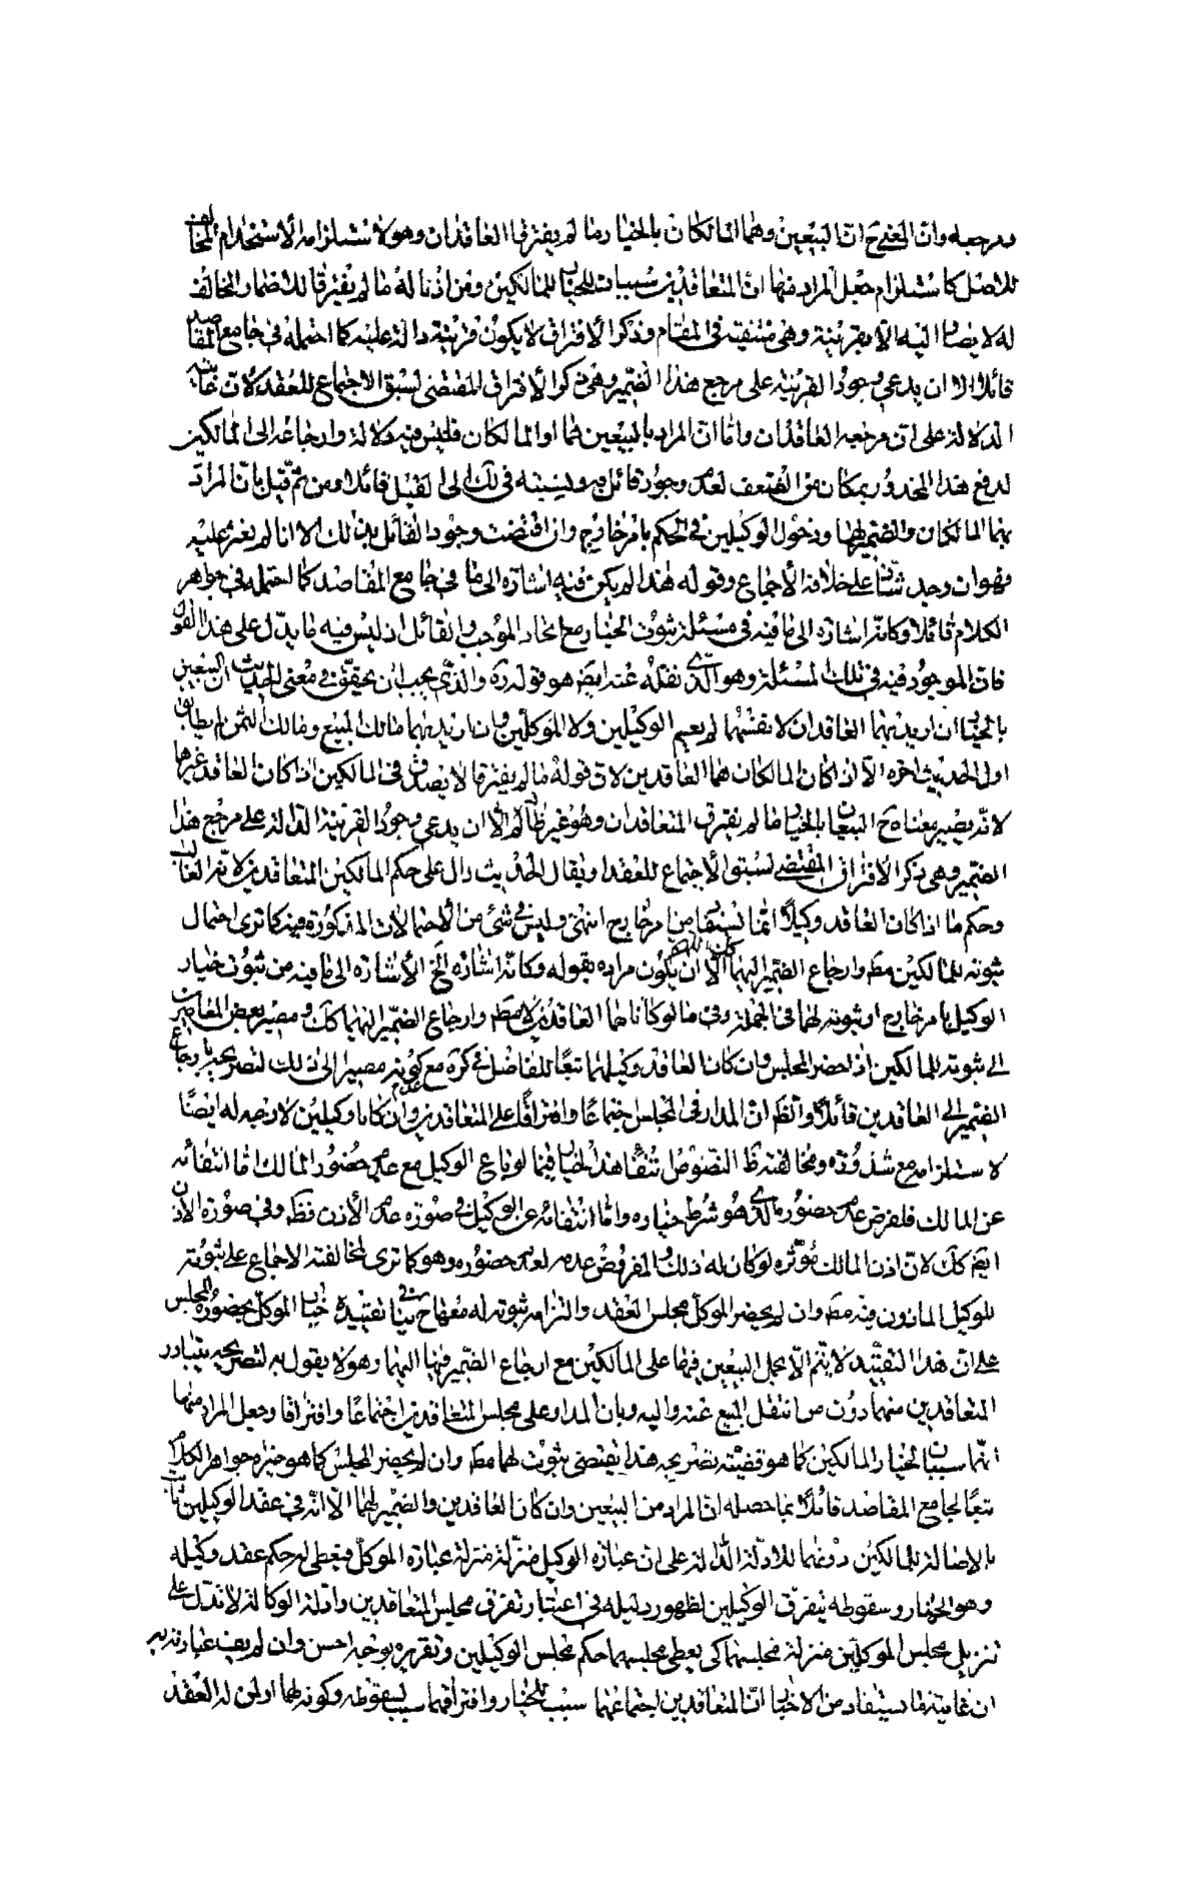 ومرجعه وان المعنى ح ان البيعين وهما المالكان بالخيار ما لم يفترق العاقدان وهو لاستلزامه الاستخدام المخالف
للاصل كاستلزام جعل المراد منها ان المتعاقدين سببان للخيار للمالكين ومن اذنا له ما لم يفترقا للاضمار المخالف
له لا يصار اليه الا بقرينة وهي منتفية في المقام وذكر الافتراق لا يكون قرينة دالة عليه كما احتمله في جامع المقاصد
قائلا الا ان يدعى وجود القرينة على مرجع هذا الضمير وهي ذكر الافتراق المقتضي لسبق الاجتماع للعقد لان غايته
الدلالة على ان مرجعه العاقدان واما ان المراد بالبيعين هما او المالكان فليس فيه دلالة وارجاعه الى المالكين
لدفع هذا المحذور بمكان من الضعف لعدم وجود قائل به ونسبته في لك الى القيل قائلا ومن ثم قيل بان المراد
بهما المالكان والضمير لهما ودخول الوكيلين في الحكم بامر خارج وان اقتضت وجود القائل بذلك الا انا لم نعثر عليه
فهو ان وجد شاذ على خلافه الاجماع وقوله هذا لم يكن فيه اشارة الى ما في جامع المقاصد كما احتمله في جواهر
الكلام قائلا وكانه اشارة الى ما فيه في مسئلة ثبوت الخيار مع اتحاد الموجب والقابل اذ ليس فيه ما يدل على هذا القول
فان الموجود فيه في تلك المسئلة وهو الذي نقله عنه ايضا هو قوله ره والذي يجب ان يحقق في معنى الحديث ان البيعين
بالخيار ان اريد بهما العاقدان لانفسهما لم يعم الوكيلين ولا الموكلين وان اريد بهما مالك المبيع ومالك الثمن لم يطابق
اول الحديث اخره الا اذا كان المالكان هما العاقدين لان قوله ما لم يفترقا لا يصدق في المالكين اذا كان العاقد غيرهما
لانه يصير معناه ح البيعان بالخيار ما لم يفترق المتعاقدان وهو غير ظاهر الا ان يدعى وجود القرينة الدالة على مرجع هذا
الضمير وهي ذكر الافتراق المقتضي لسبق الاجتماع للعقد او يقال الحديث دال على حكم المالكين المتعاقدين لانه الغالب
وحكم ما اذا كان العاقد وكيلا انما يستفاد من امر خارج انتهى وليس في شئ من الاحتمالات المذكورة فيه كما ترى احتمال
ثبوته للمالكين مط وارجاع الضمير اليهما كك اللهم الا ان يكون مراده بقوله وكانه اشارة الخ الاشارة الى ما فيه من ثبوت خيار
الوكيل بامر خارج او ثبوته لهما في الجملة وفي ما لو كانا هما العاقدين لا مط وارجاع الضمير اليهما كك ومصير بعض المعاصرين
الى ثبوته للمالكين اذا حضر المجلس وان كان العاقد وكيلهما تبعا للفاضل في كره مع عدم كونه مصيرا الى ذلك لتصريحه بارجاع
الضمير الى العاقدين قائلا والظ ان المدار في المجلس اجتماعا وافتراقا على المتعاقدين وان كانا وكيلين لا وجه له ايضا
لاستلزامه مع شذوذه ومخالفته ظ النصوص انتفاء هذا الخيار فيما لو باع الوكيل مع عدم حضور المالك اما انتفائه
عن المالك فلفرض عدم حضوره الذي هو شرط خياره واما انتفائه عن الوكيل في صورة عدم الاذن فظ وفي صورة الاذن
ايضا كك لان اذن المالك مؤثرة لو كان له ذلك والمفروض عدمه لعدم حضوره وهو كما ترى لمخالفته الاجماع على ثبوته
للوكيل الماذون فيه مط وان لم يحضر الموكل مجلس العقد والتزامه ثبوته له مفهاح ينافي تقييده خيار الموكل بحضوره المجلس
على ان هذا التقييد لا يتم الا بحمل البيعين فيها على المالكين مع ارجاع الضمير فيها اليهما وهو لا يقول به لتصريحه بتبادر
المتعاقدين منهما دون من انتقل المبيع عنه واليه وبان المدار على مجلس المتعاقدين اجتماعا وافتراقا وجعل المراد منهما
انهما سببان لخيار المالكين كما هو قضية تصريحه هذا يقتضي ثبوت لهما مط وان لم يحضر المجلس كما هو خيرة جواهر الكلام
تبعا لجامع المقاصد قائلا بما حصله ان المراد من البيعين وان كان العاقدين والضمير لهما الا انه في عقد الوكيلين ثابت
بالاصالة للمالكين دونهما للادلة الدالة على ان عبارة الوكيل منزلة منزلة عبارة الموكل فيعطى له حكم عقد وكيله
وهو الخيار وسقوطه بتفرق الوكيلين لظهور دليله في اعتبار تفرق مجلس المتعاقدين وادلة الوكالة لا تدل على
تنزيل مجلس الموكلين منزلة مجلسهما كي يعطى مجلسهما حكم مجلس الوكيلين وتقريره بوجه احسن وان لم يف عبارته به
ان غاية ما يستفاد من الاخبار ان المتعاقدين اجتماعهما سبب للخيار وافتراقهما سبب لسقوطه وكونه لهما او لمن له العقد